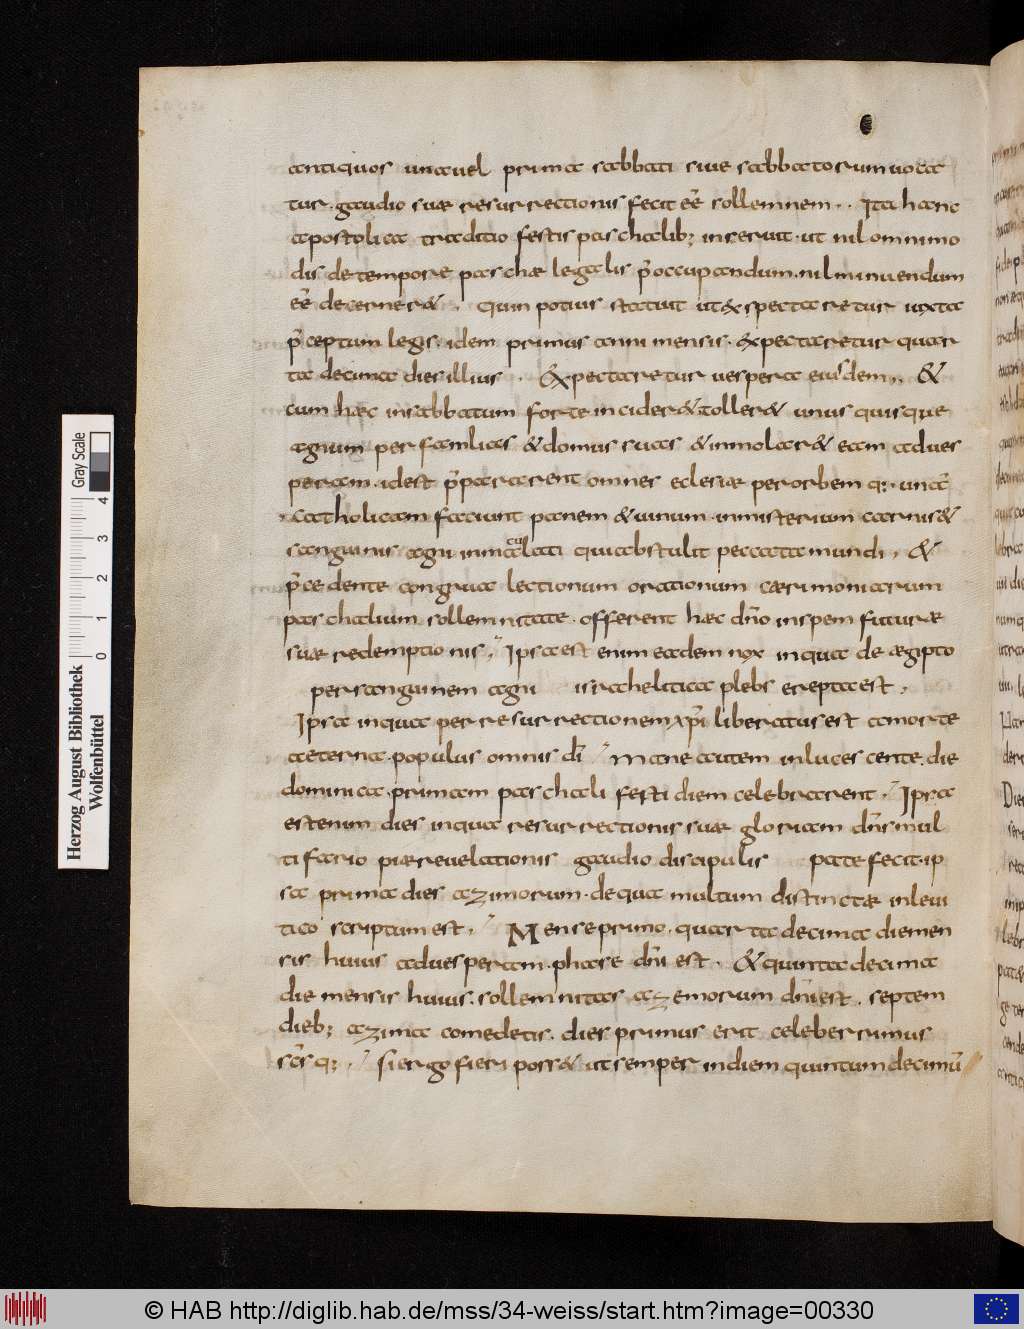 antiquos una uel prima sabbati siue sabbatorum uoca
tur. gaudio suæ resurrectionis fecit eē sollemnem.. Ita hanc
apostolica traditio festis paschalib; inseruit. ut nil omnimo
dis de tempore paschæ legalis p̄occupandum. nil minuendum
eē decerner&. Quin potius statuit ut expectaretur iuxta
p̄ceptum legis. idem primus anni mensis. expectaretur quar
ta decima dies illius. Expectaretur uespera eiusdem,, &
cum hæc in sabbatum forte incider& toller& unus quisque
agnum per familias & domus suas & inmolar& eam ad ues
peram. idest p̄pararent omnes eclesiæ per orbem q: unā
catholicam faciunt panem & uinum. in misterium carnis &
sanguinis agni inmaculati qui abstulit peccata mundi, &
p̄cedente congrua lectionum orationum cærimoniarum
paschalium sollemnitate. offerent hæc dn̄o in spem futuræ
suæ redemptionis, Ipsa est enim eadem nox in qua de ægipto
per sanguinem agni israhelitica plebs erepta est,
Ipsa in qua per resurrectionem xp̄i liberatus est a morte
aeterna. populus omnis dī, Mane autem inlucescente. die
dominica. primam paschali festi diem celebrarent, Ipsa
est enim dies in qua resurrectionis suæ gloriam dn̄s mul
tifario piæ reuelationis gaudio discipulis patefecit. ip
sa prima dies azimorum. de qua multum distinctæ in leui
tico scriptum est, Mense primo. quarta decima die men
sis huius ad uesperam. phase dn̄i est. & quinta decima
die mensis huius. sollemnitas azemorum dn̄i est. septem
dieb; azima comedetis. dies primus erit celeberrimus
sc̄s q:, Si ergo fieri poss& ut semper in diem quintum decimū
Herzog August Bibliothek
Wolfenbüttel
0 1 2 3 4
Gray Scale
© HAB http://diglib.hab.de/mss/34-weiss/start.htm?image=00330